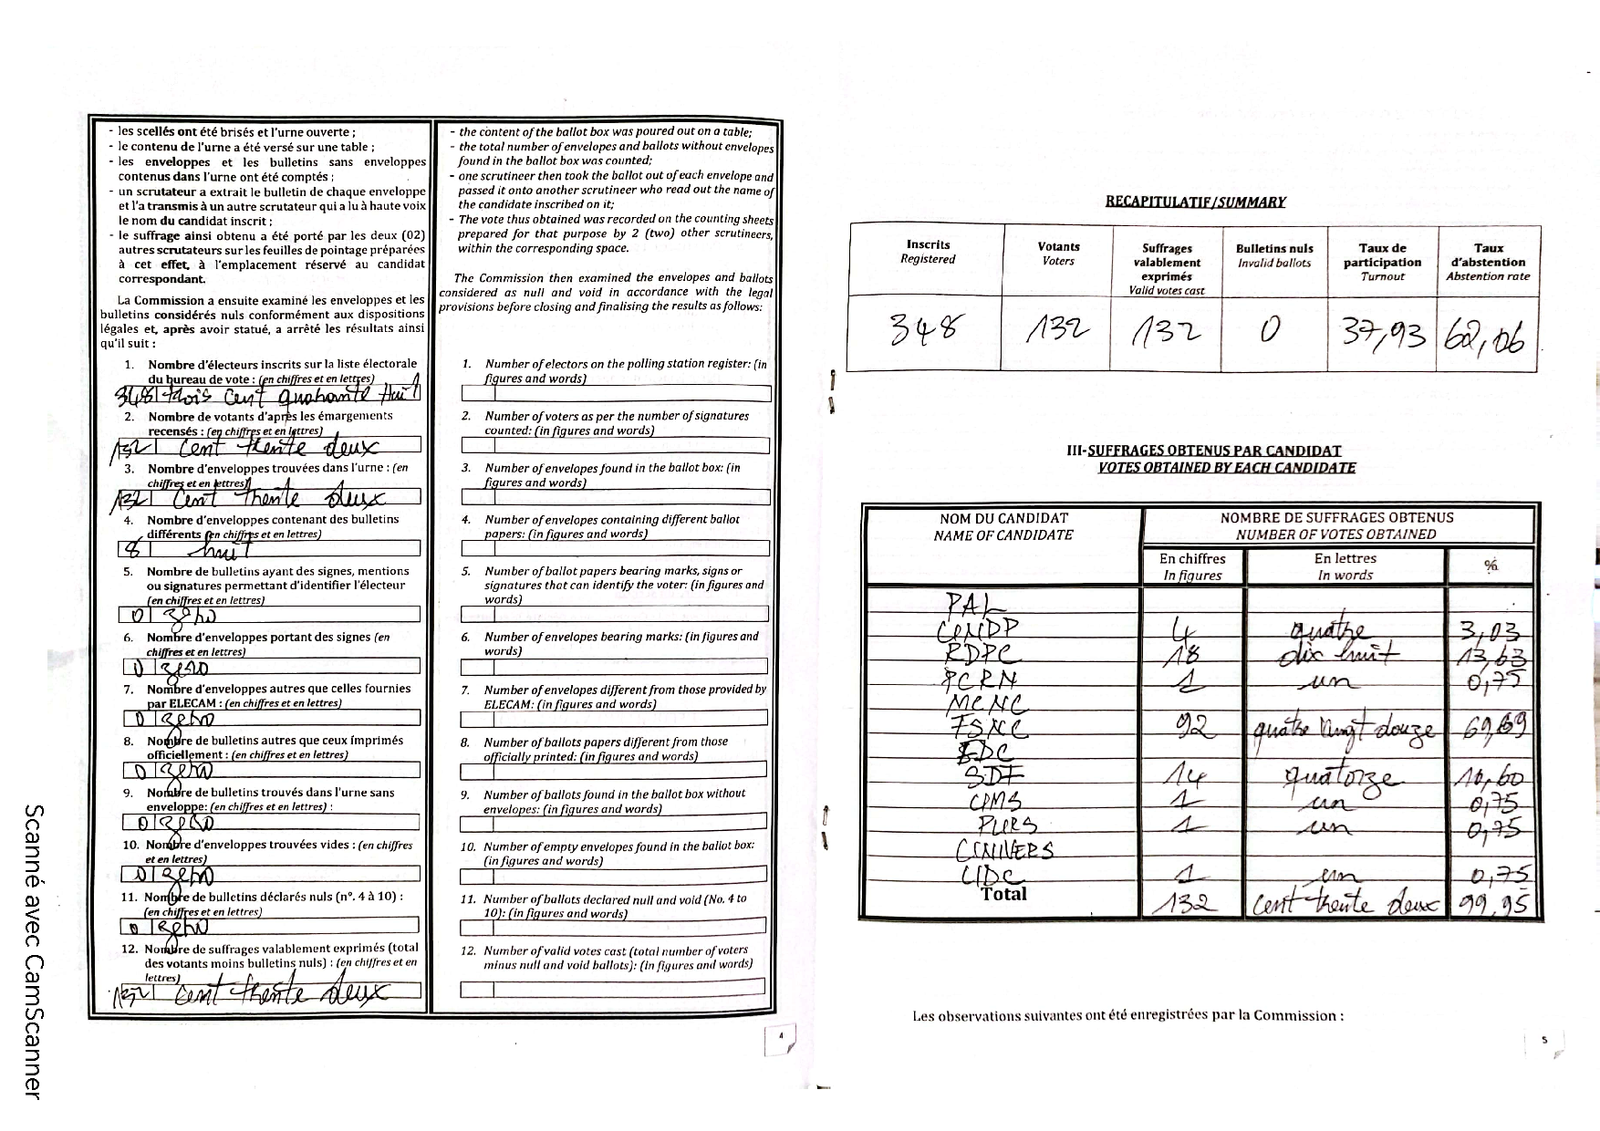 - les scellés ont été brisés et l'urne ouverte ;
- le contenu de l'urne a été versé sur une table ;
- les enveloppes et les bulletins sans enveloppes
contenus dans l'urne ont été comptés ;
- un scrutateur a extrait le bulletin de chaque enveloppe
et l'a transmis à un autre scrutateur qui a lu à haute voix
le nom du candidat inscrit ;
- le suffrage ainsi obtenu a été porté par les deux (02)
autres scrutateurs sur les feuilles de pointage préparées
à cet effet, à l'emplacement réservé au candidat
correspondant.
La Commission a ensuite examiné les enveloppes et les
bulletins considérés nuls conformément aux dispositions
légales et, après avoir statué, a arrêté les résultats ainsi
qu'il suit :
1. Nombre d'électeurs inscrits sur la liste électorale
du bureau de vote : (en chiffres et en lettres)
348 trois cent quarante huit
2. Nombre de votants d'après les émargements
recensés : (en chiffres et en lettres)
132 cent trente deux
3. Nombre d'enveloppes trouvées dans l'urne : (en
chiffres et en lettres)
132 cent trente deux
4. Nombre d'enveloppes contenant des bulletins
différents (en chiffres et en lettres)
8 huit
5. Nombre de bulletins ayant des signes, mentions
ou signatures permettant d'identifier l'électeur
(en chiffres et en lettres)
0 zero
6. Nombre d'enveloppes portant des signes (en
chiffres et en lettres)
0 zero
7. Nombre d'enveloppes autres que celles fournies
par ELECAM : (en chiffres et en lettres)
0 zero
8. Nombre de bulletins autres que ceux imprimés
officiellement : (en chiffres et en lettres)
0 zero
9. Nombre de bulletins trouvés dans l'urne sans
enveloppe: (en chiffres et en lettres) :
0 zero
10. Nombre d'enveloppes trouvées vides : (en chiffres
et en lettres)
0 zero
11. Nombre de bulletins déclarés nuls (n°. 4 à 10) :
(en chiffres et en lettres)
0 zero
12. Nombre de suffrages valablement exprimés (total
des votants moins bulletins nuls) : (en chiffres et en
lettres)
132 cent trente deux
- the content of the ballot box was poured out on a table;
- the total number of envelopes and ballots without envelopes
found in the ballot box was counted;
- one scrutineer then took the ballot out of each envelope and
passed it onto another scrutineer who read out the name of
the candidate inscribed on it;
- The vote thus obtained was recorded on the counting sheets
prepared for that purpose by 2 (two) other scrutineers,
within the corresponding space.
The Commission then examined the envelopes and ballots
considered as null and void in accordance with the legal
provisions before closing and finalising the results as follows:
1. Number of electors on the polling station register: (in
figures and words)
2. Number of voters as per the number of signatures
counted: (in figures and words)
3. Number of envelopes found in the ballot box: (in
figures and words)
4. Number of envelopes containing different ballot
papers: (in figures and words)
5. Number of ballot papers bearing marks, signs or
signatures that can identify the voter: (in figures and
words)
6. Number of envelopes bearing marks: (in figures and
words)
7. Number of envelopes different from those provided by
ELECAM: (in figures and words)
8. Number of ballots papers different from those
officially printed: (in figures and words)
9. Number of ballots found in the ballot box without
envelopes: (in figures and words)
10. Number of empty envelopes found in the ballot box:
(in figures and words)
11. Number of ballots declared null and void (No. 4 to
10): (in figures and words)
12. Number of valid votes cast (total number of voters
minus null and void ballots): (in figures and words)
4
Scanné avec CamScanner
RECAPITULATIF/SUMMARY
Inscrits Registered
Votants Voters
Suffrages valablement exprimés Valid votes cast
Bulletins nuls Invalid ballots
Taux de participation Turnout
Taux d'abstention Abstention rate
348 132 132 0 37,93 62,06
III-SUFFRAGES OBTENUS PAR CANDIDAT
VOTES OBTAINED BY EACH CANDIDATE
NOM DU CANDIDAT
NAME OF CANDIDATE
NOMBRE DE SUFFRAGES OBTENUS
NUMBER OF VOTES OBTAINED
En chiffres In figures
En lettres In words
%
PAL
4 quatre 3,03
RDPC 18 dix huit 13,63
PCRN 1 un 0,75
MCNC
FSNC 92 quatre vingt douze 69,69
SDF 14 quatorze 10,60
1 un 0,75
PURS 1 un 0,75
UNIVERS
UDC 1 un 0,75
Total 132 cent trente deux 99,95
Les observations suivantes ont été enregistrées par la Commission :
5